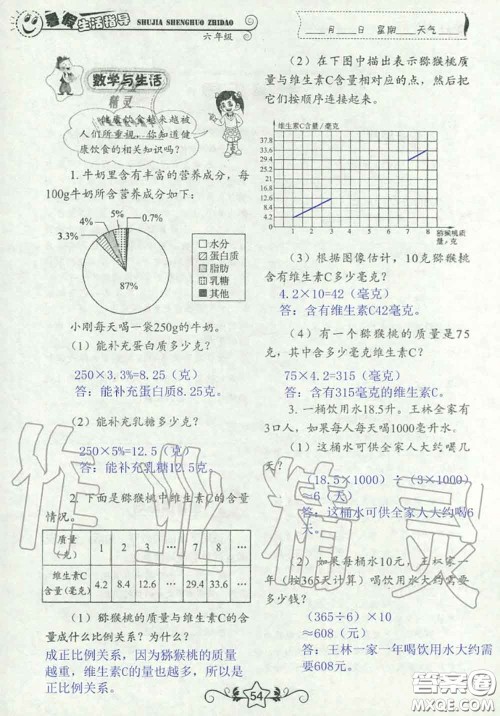 暑假生活指导
SHUJIA SHENGHUO ZHIDAO
六年级
月 日 星期 天气
数学与生活
精灵
健康饮食越来越被
人们所重视，你知道健
康饮食的相关知识吗？
1. 牛奶里含有丰富的营养成分，每
100g牛奶所含营养成分如下：
5% 0.7%
4%
3.3%
87%
水分
蛋白质
脂肪
乳糖
其他
小刚每天喝一袋250g的牛奶。
（1）能补充蛋白质多少克？
250×3.3%=8.25（克）
答：能补充蛋白质8.25克。
（2）能补充乳糖多少克？
250×5%=12.5（克）
答：能补充乳糖12.5克。
2. 下面是猕猴桃中维生素C的含量
情况。
质量（克） 1 2 3 … 7 8 …
维生素C含量(毫克) 4.2 8.4 12.6 … 29.4 33.6 …
（1）猕猴桃的质量与维生素C的含
量成什么比例关系？为什么？
成正比例关系，因为猕猴桃的质量
越重，维生素C的量也越多，所以是
正比例关系。
（2）在下图中描出表示猕猴桃质
量与维生素C含量相对应的点，然后把
它们按顺序连接起来。
维生素C含量/毫克
37.8
33.6
29.4
25.2
21
16.8
12.6
8.4
4.2
0 1 2 3 4 5 6 7 8
猕猴桃质
量/克
（3）根据图像估计，10克猕猴桃
含有维生素C多少毫克？
4.2×10=42（毫克）
答：含有维生素C42毫克。
（4）有一个猕猴桃的质量是75
克，其中含多少毫克的维生素C？
75×4.2=315（毫克）
答：含有315毫克的维生素C。
3. 一桶饮用水18.5升。王林全家有
3口人，如果每人每天喝1000毫升水。
（1）这桶水可供全家人大约喝几
天？
（18.5×1000）÷（3×1000）
≈6（天）
答：这桶水可供全家人大约喝6
天。
（2）如果每桶水10元，王林家一
年（按365天计算）喝饮用水大约需要
多少钱？
（365÷6）×10
≈608（元）
答：王林一家一年喝饮用水大约需要
608元。
54
作业精灵
答案圈
MXQE.COM